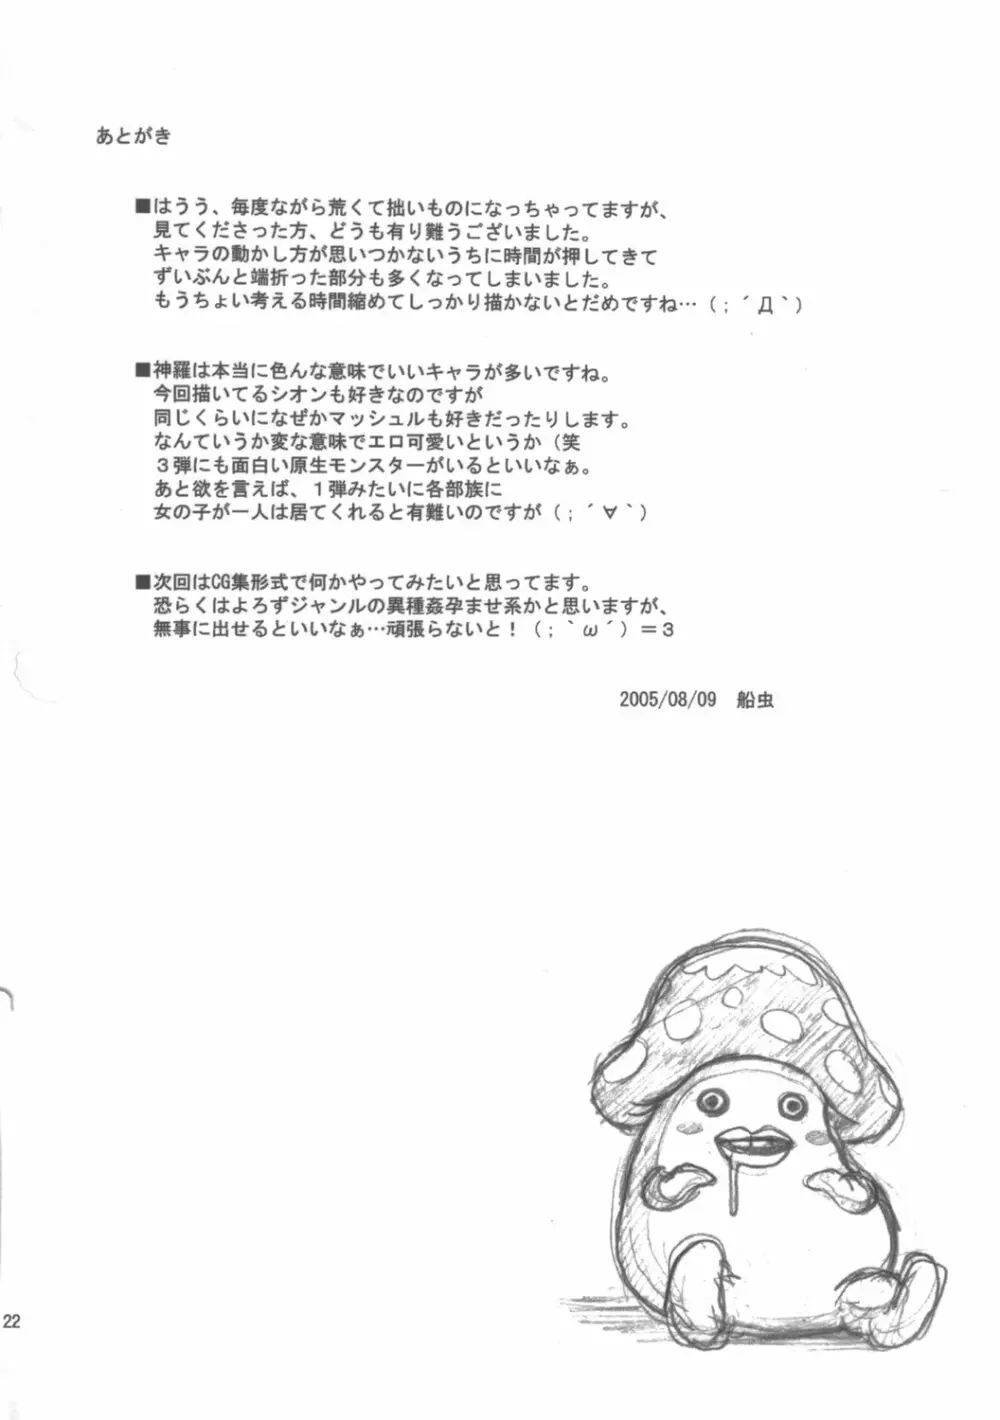 あとがき
■はうう、毎度ながら荒くて拙いものになっちゃってますが、
見てくださった方、どうも有り難うございました。
キャラの動かし方が思いつかないうちに時間が押してきて
ずいぶんと端折った部分も多くなってしまいました。
もうちょい考える時間縮めてしっかり描かないとだめですね…（；´Д｀）
■神羅は本当に色んな意味でいいキャラが多いですね。
今回描いてるシオンも好きなのですが
同じくらいになぜかマッシュルも好きだったりします。
なんていうか変な意味でエロ可愛いというか（笑
３弾にも面白い原生モンスターがいるといいなぁ。
あと欲を言えば、１弾みたいに各部族に
女の子が一人は居てくれると有難いのですが（；´∀｀）
■次回はCG集形式で何かやってみたいと思ってます。
恐らくはよろずジャンルの異種姦孕ませ系かと思いますが、
無事に出せるといいなぁ…頑張らないと！（；｀ω´）＝３
2005/08/09　船虫
22